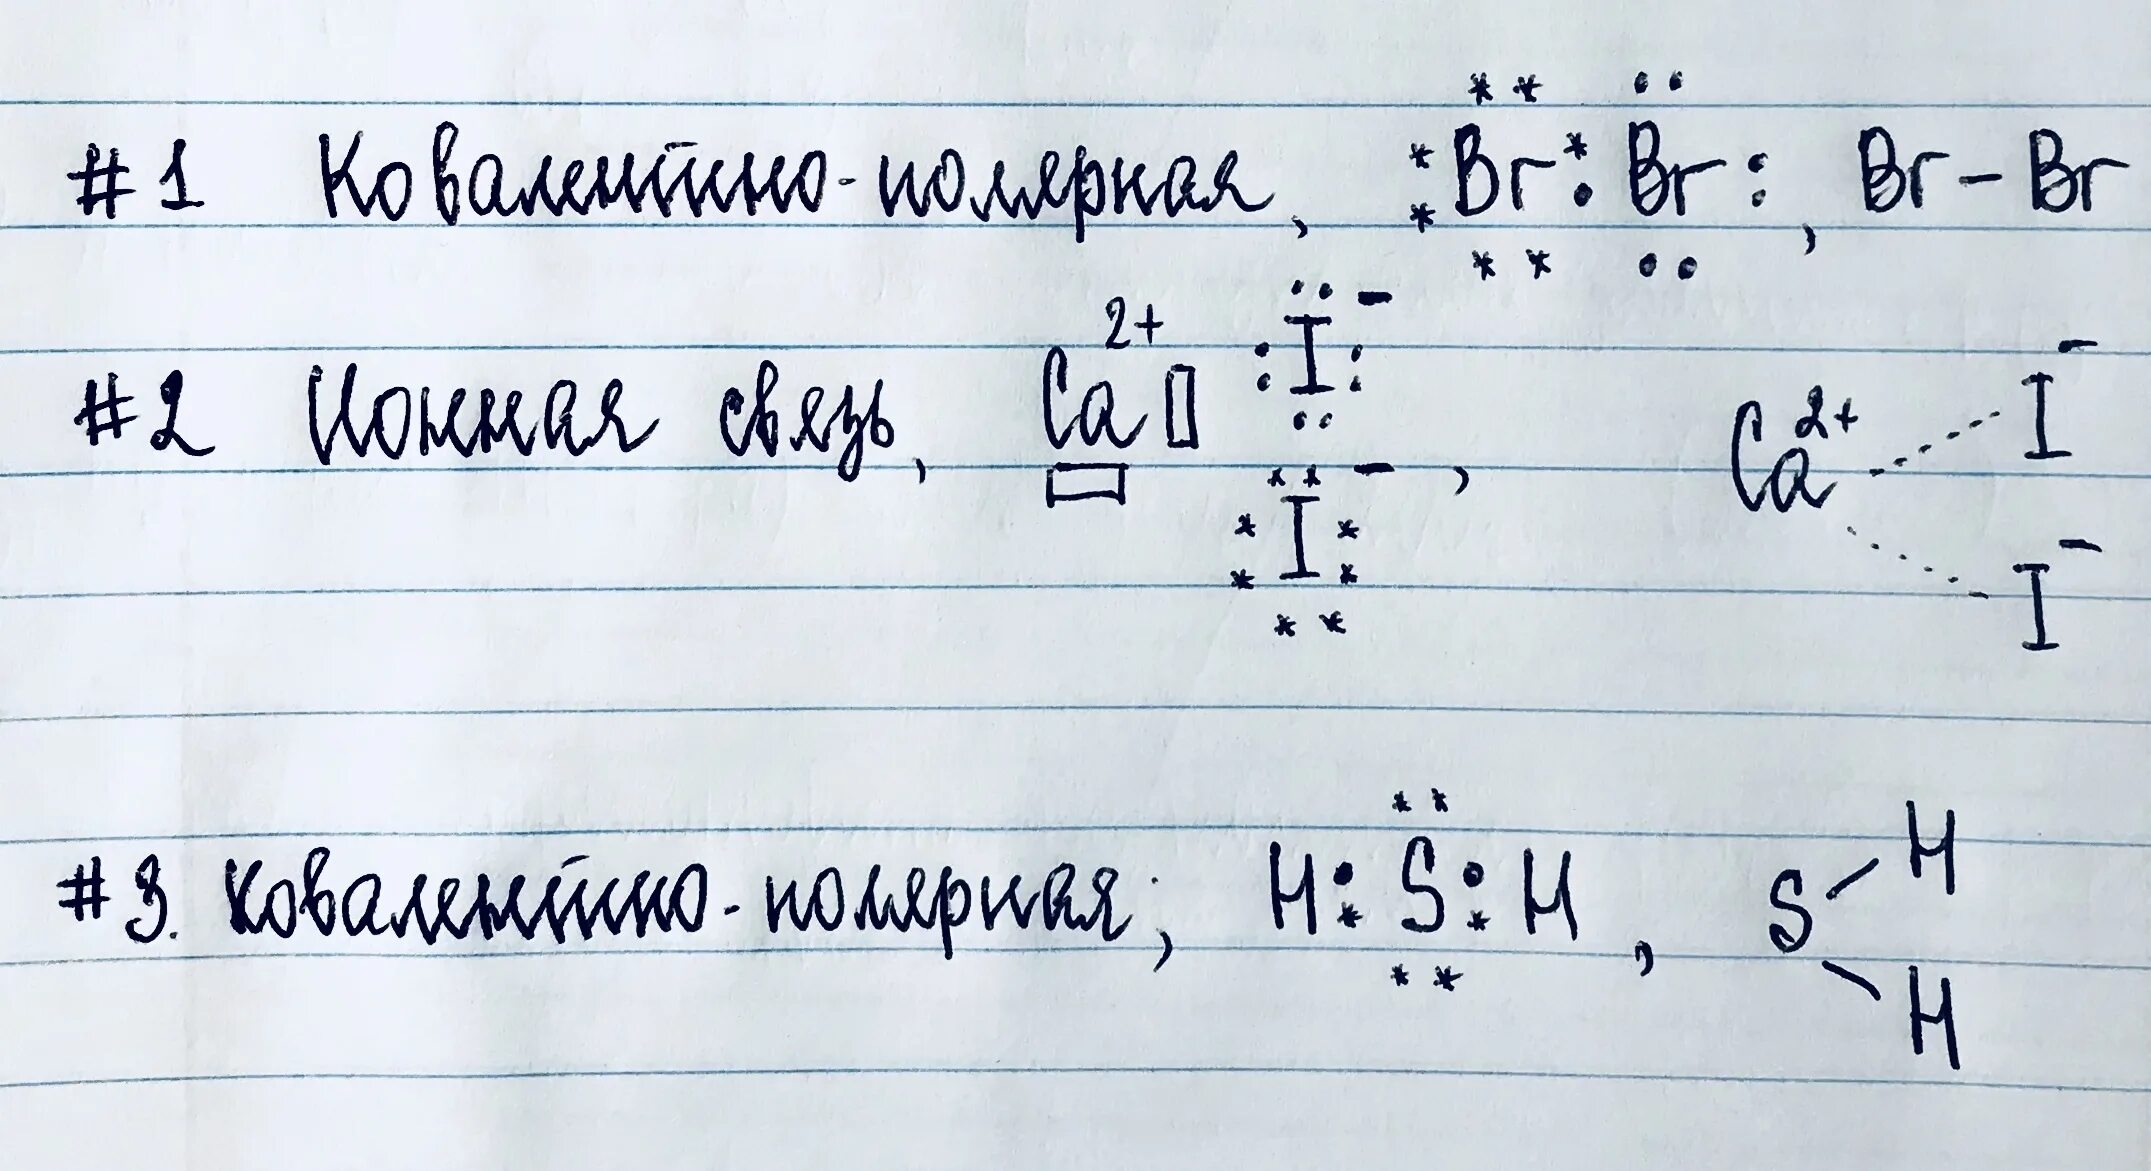 #1 Ковалентно-полярная, Br : Br :, Br – Br
#2 Ионная связь, Ca 2+ I –, Ca 2+ I –
I – I –
#3. Ковалентно-полярная, H : S : H, S H
H